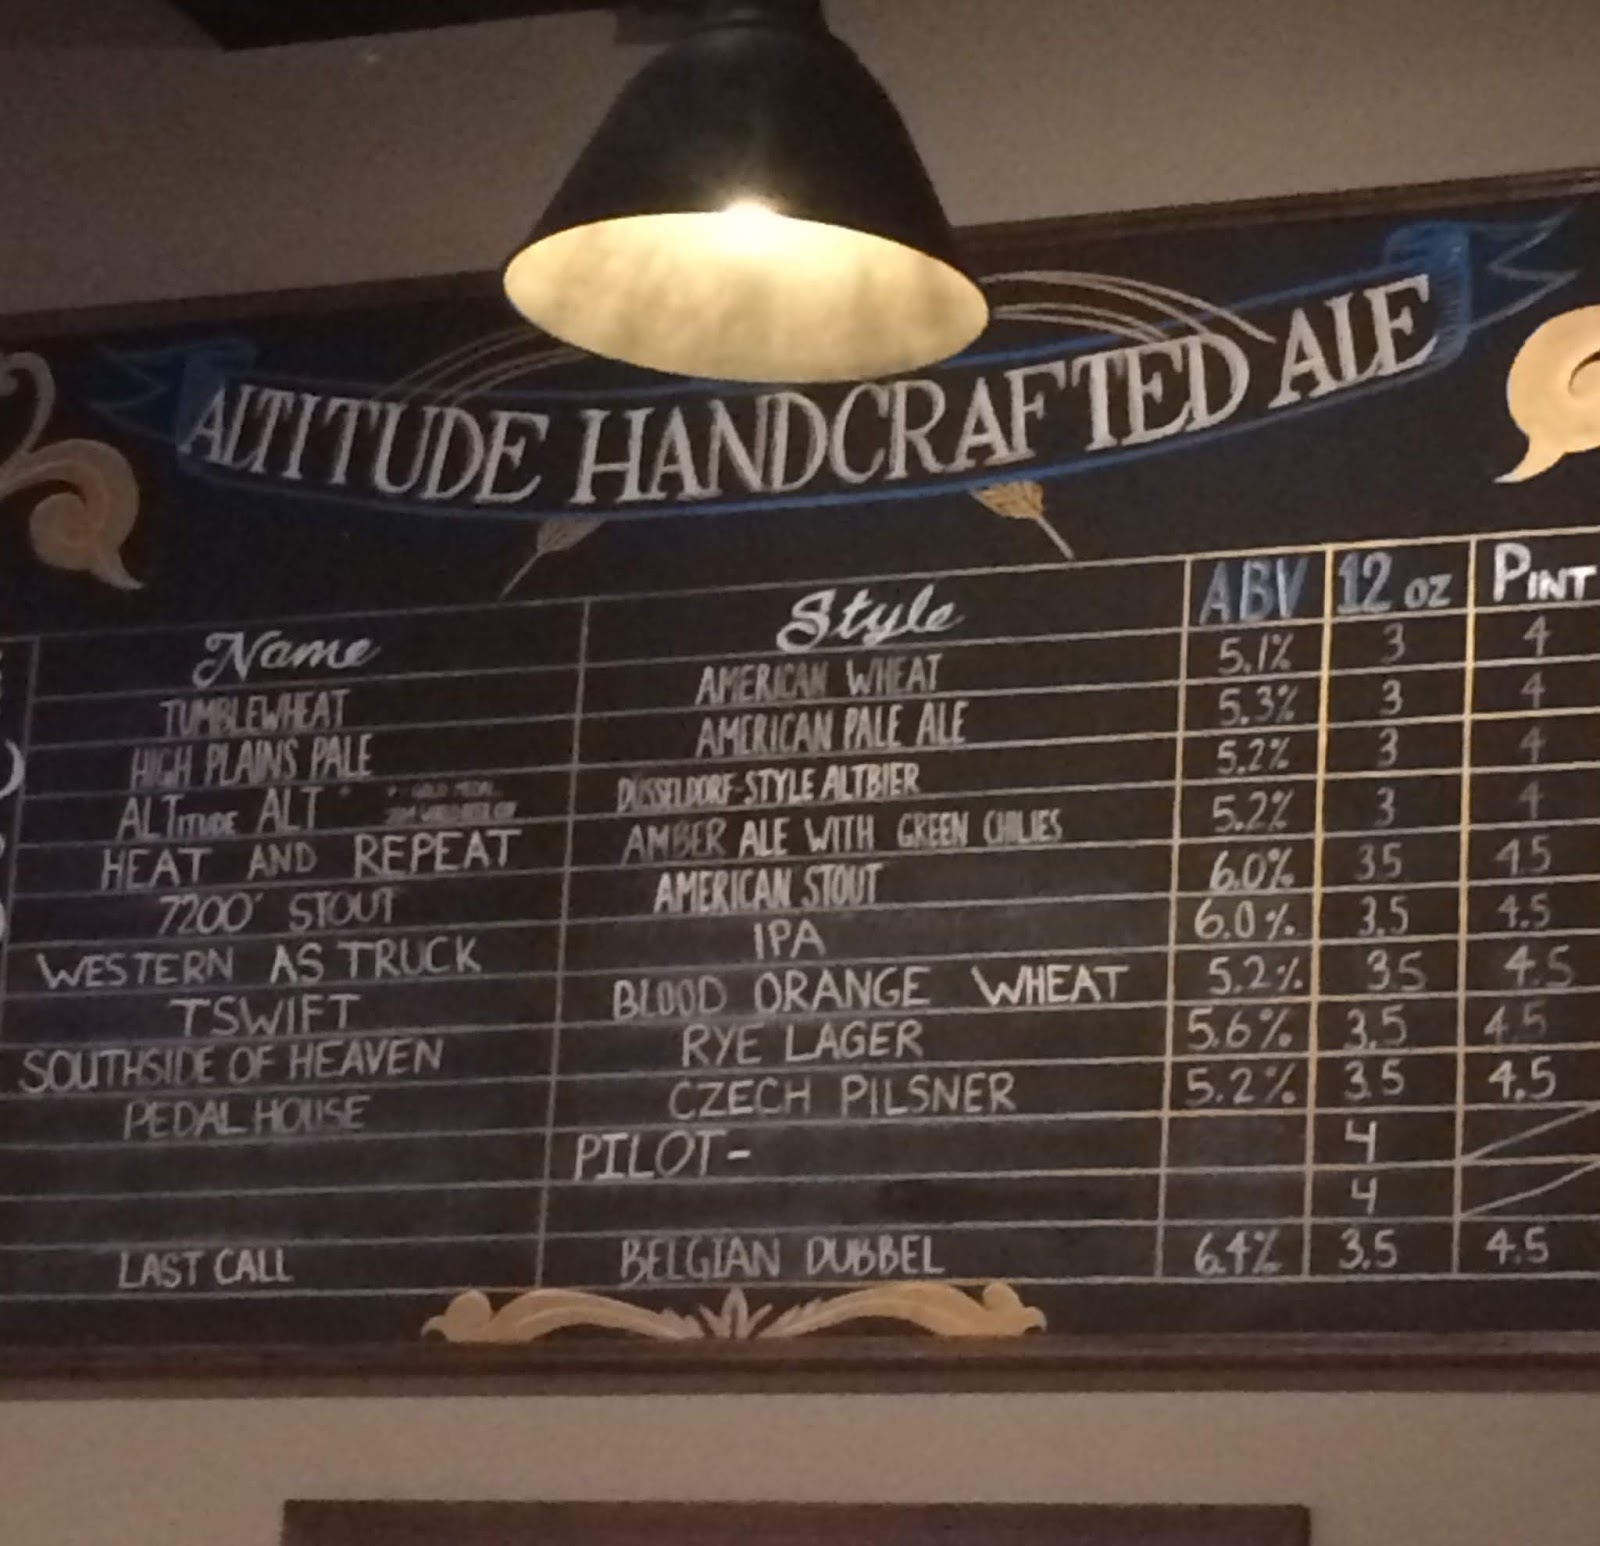 ALTITUDE HANDCRAFTED ALE
Name Style ABV 12 oz PINT
TUMBLEWHEAT AMERICAN WHEAT 5.1% 3 4
HIGH PLAINS PALE AMERICAN PALE ALE 5.3% 3 4
ALTITUDE ALT * * GOLD MEDAL DUSSELDORF-STYLE ALTBIER 5.2% 3 4
HEAT AND REPEAT AMBER ALE WITH GREEN CHILIES 5.2% 3 4
7200' STOUT AMERICAN STOUT 6.0% 3.5 4.5
WESTERN AS TRUCK IPA 6.0% 3.5 4.5
TSWIFT BLOOD ORANGE WHEAT 5.2% 3.5 4.5
SOUTHSIDE OF HEAVEN RYE LAGER 5.6% 3.5 4.5
PEDAL HOUSE CZECH PILSNER 5.2% 3.5 4.5
PILOT- 4
4
LAST CALL BELGIAN DUBBEL 6.4% 3.5 4.5